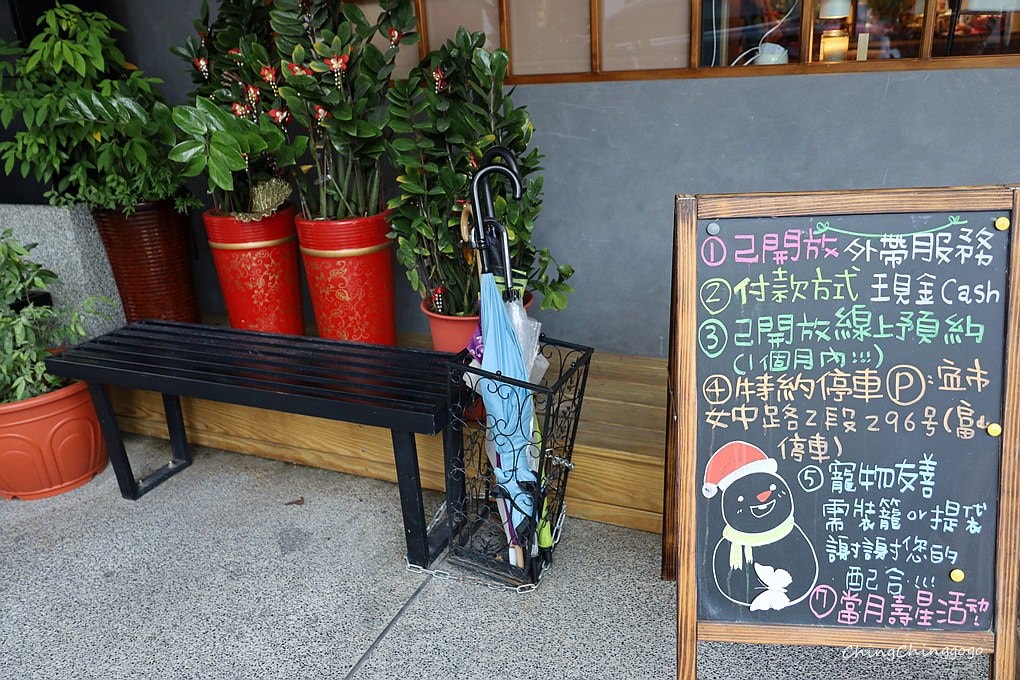 ①已開放外帶服務
②付款方式 現金Cash
③已開放線上預約
(1個月內!!!)
④特約停車Ⓟ:宜市
女中路2段296号(富山
停車)
⑤寵物友善
需裝籠or提袋
謝謝您的
配合!!!
⑦當月壽星活动!
ChingChinggogo